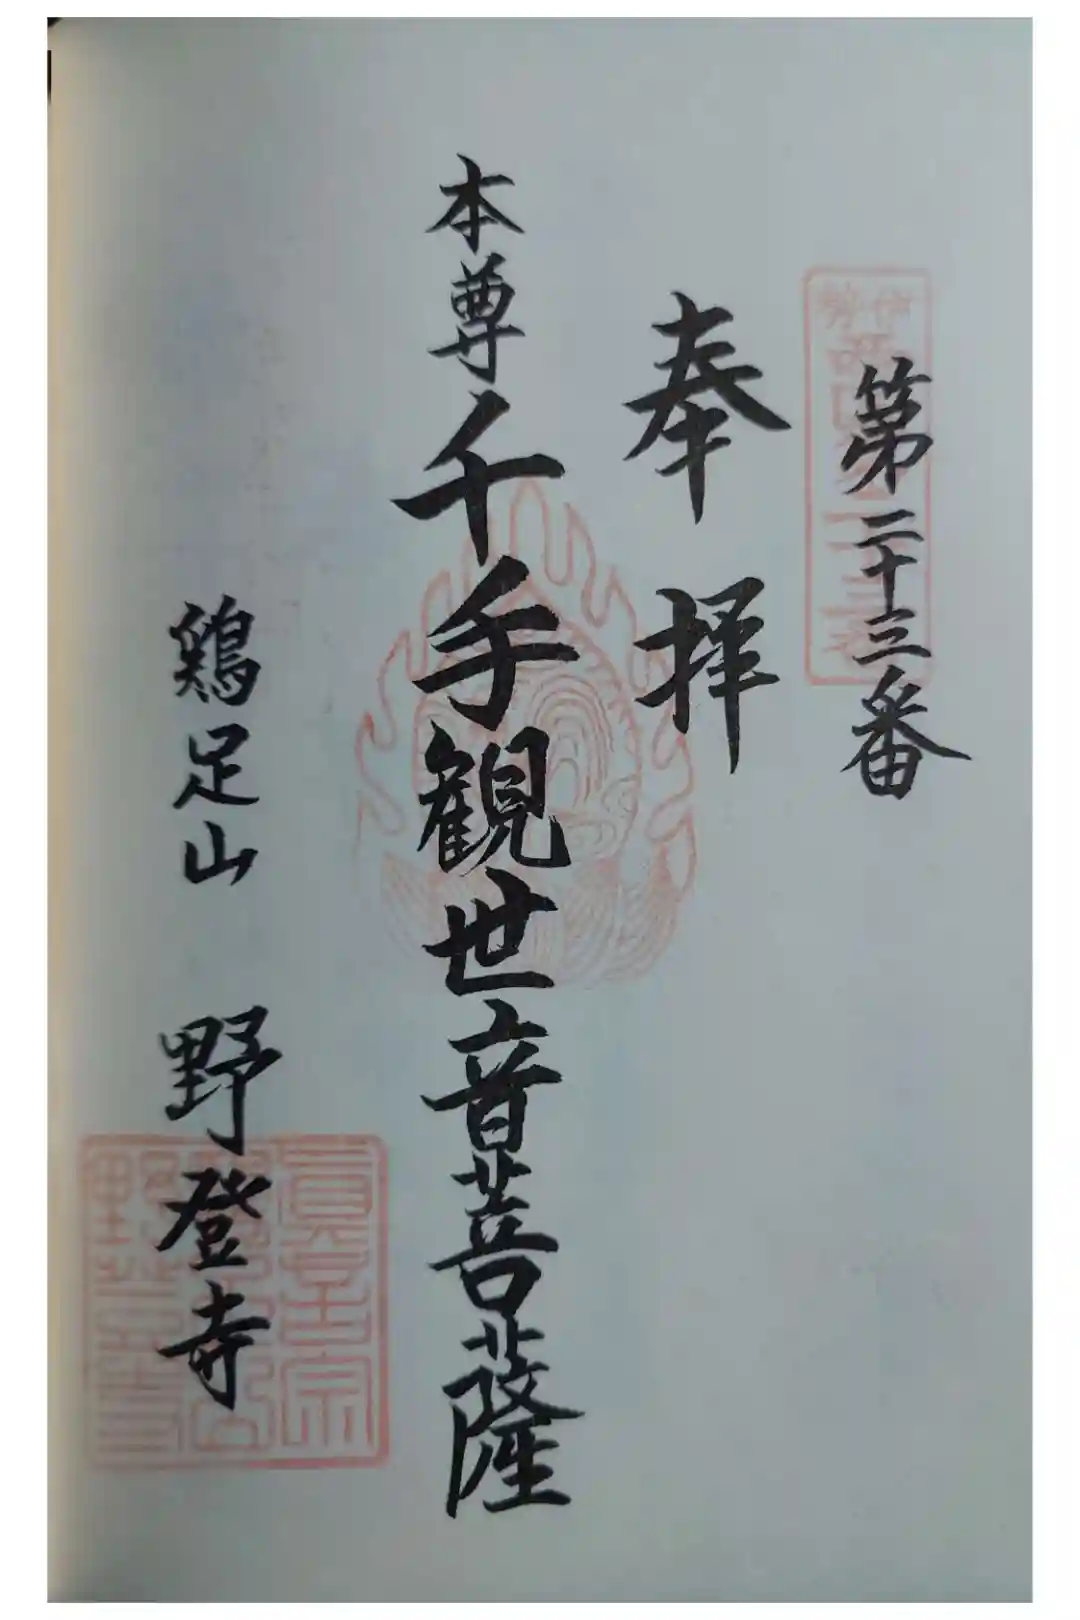 第二十三番
奉拝
本尊千手観世音菩薩
鶏足山 野登寺